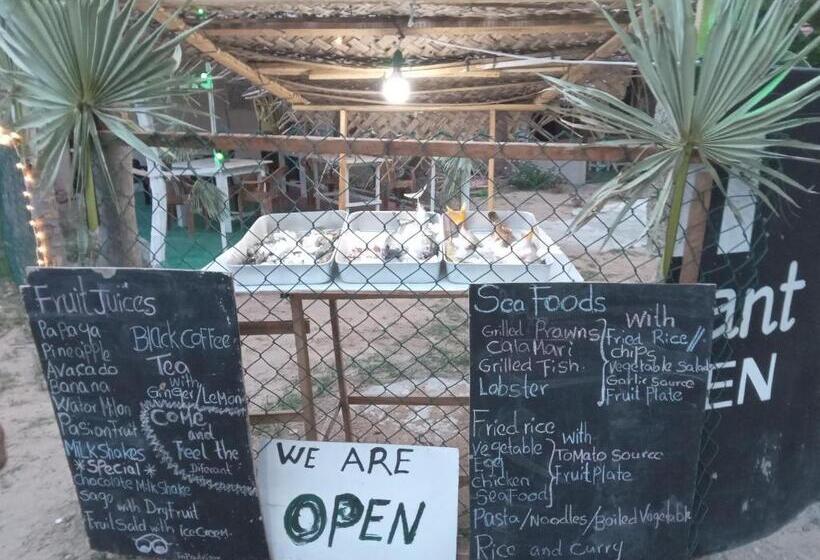 Fruit Juices
Papaya
Pineapple
Avacado
Banana
Wator Milon
Pasionfruit
Milkshakes
*Special*
chocolate Milkshake
sago with DryFruit
Fruit Salad with Ice Cream
Black Coffee
Tea
with
Ginger/Lemon
COME
and
Feel the
Diferant
WE ARE
OPEN
Sea Foods
Grilled Prawns
Calamari
Grilled Fish
Lobster
with
Fried Rice//
chips
Vegetable Salad
Garlic source
Fruit Plate
Fried rice
vegetable
Egg
chicken
SeaFood
with
Tomato Source
Fruit Plate
Pasta/Noodles/Boiled Vegetable
Rice and Curry
ant
EN